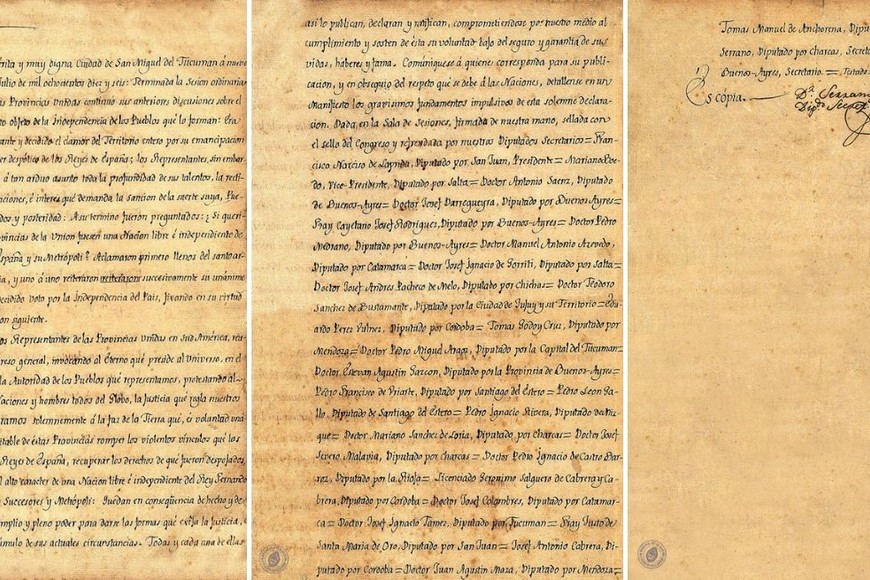 érita y muy digna Ciudad de San Miguel del Tucuman á nueve
Julio de mil ochocientos diez y seis: Terminada la Sesion ordinaria
as Provincias Unidas continuó sus anteriores discusiones sobre el
to objeto de la Independencia de los Pueblos qué lo forman: Era
ante y decidido el clamor del Territorio entero por su emancipacion
er despótico de los Reyes de España; los Representantes, sin embar-
á tan arduo asunto toda la profundidad de sus talentos, la recti-
nciones, é interés qué demanda la sancion de la suerte suya, Pue-
dos y posteridad: A su termino fueron preguntados: ¿Si queri-
vincias de la Union fuesen una Nacion libre é independiente de
España y su Metrópoli? Aclamaron primero llenos del santo ar-
ia, y uno á uno reiteraron reiteraron successivamente su unánime
decidido voto por la Independencia del Pais, fixando en su virtud
on siguiente.
os Representantes de las Provincias unidas en Sud América, reu-
greso general, invocando al Eterno qué preside al Universo, en el
la Autoridad de los Pueblos qué representamos, protestando al-
Naciones y hombres todos del Globo, la Justicia, qué regla nuestros
aramos solemnemente á la faz de la Tierra qué, és voluntad uná-
itable de éstas Provincias romper los violentos vínculos qué los
Reyes de España, recuperar los derechos de qué fueron despojadas,
l alto carácter de una Nacion libre é independiente del Rey Fernando
Succesores y Metrópoli: Quedan en conseqüencia de hecho y de
amplio y pleno poder para darse las formas qué exija la Justicia, é
úmulo de sus actuales circunstancias. Todas y cada una de ellas
así lo publican, declaran y ratifican, comprometiendose por nuestro medio al
cumplimiento y sosten de ésta su voluntad bajo del seguro y garantía de sus
vidas, haberes y fama. Comúniquese á quienes corresponda para su publi-
cacion, y en obsequio del respeto qué se debe á las Naciones, detallense en un
Manifiesto los gravisimos fundamentos impulsivos de esta solemne declara-
cion. Dada en la Sala de Sesiones, firmada de nuestra mano, sellada con
el sello del Congreso y refrendada por nuestros Diputados Secretarios = Fran-
cisco Narciso de Laprida, Diputado por San Juan, Presidente = Mariano Boe-
do, Vice-Presidente, Diputado por Salta = Doctor Antonio Saenz, Diputado
de Buenos-Ayres = Doctor Josef Darregueyra, Diputado por Buenos-Ayres =
Fray Cayetano Josef Rodriguez, Diputado por Buenos-Ayres = Doctor Pedro
Medrano, Diputado por Buenos-Ayres = Doctor Manuel Antonio Acevedo,
Diputado por Catamarca = Doctor Josef Ignacio de Gorriti, Diputado por Salta =
Doctor Josef Andres Pacheco de Melo, Diputado por Chichas = Doctor Teodoro
Sanchez de Bustamante, Diputado por la Ciudad de Jujuy y su Territorio = Edu-
ardo Perez Pulnes, Diputado por Córdoba = Tomas Godoy Cruz, Diputado por
Mendoza = Doctor Pedro Miguel Araoz, Diputado por la Capital del Tucuman =
Doctor Estevan Agustin Gazcon, Diputado por la Provincia de Buenos-Ayres =
Pedro Francisco de Uriarte, Diputado por Santiago del Estero = Pedro Leon Ga-
llo, Diputado de Santiago del Estero = Pedro Ignacio Rivera, Diputado de Miz-
que = Doctor Mariano Sanchez de Loria, Diputado por Charcas = Doctor Josef
Severo Malavia, Diputado por Charcas = Doctor Pedro Ignacio de Castro Bar-
ros, Diputado por la Rioja = Licenciado Geronimo Salguero de Cabrera y Ca-
brera, Diputado por Córdoba = Doctor Josef Colombres, Diputado por Catamar-
ca = Doctor Josef Ignacio Tames, Diputado por Tucuman = Fray Justo de
Santa Maria de Oro, Diputado por San Juan = Josef Antonio Cabrera, Di-
putado por Córdoba = Doctor Juan Agustin Maza, Diputado por Mendoza =
Tomas Manuel de Anchorena, Diput
Serrano, Diputado por Charcas, Secret
Buenos-Ayres, Secretario =
Es cópia.
Dr. Serrano